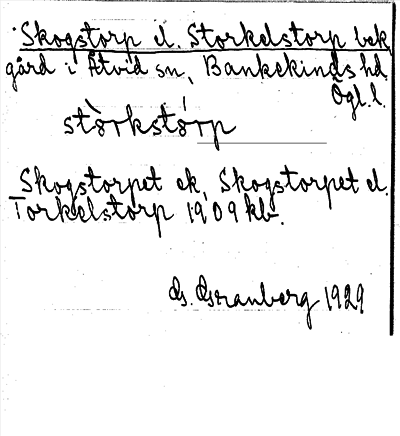 Skogstorp el. Storkelstorp bek
gård i Åtvid sn, Bankekinds hd
Ögl.l.
stòrkstórp
Skogstorpet ek, Skogstorpet el.
Torkelstorp 1909 kb.
G. Granberg 1929